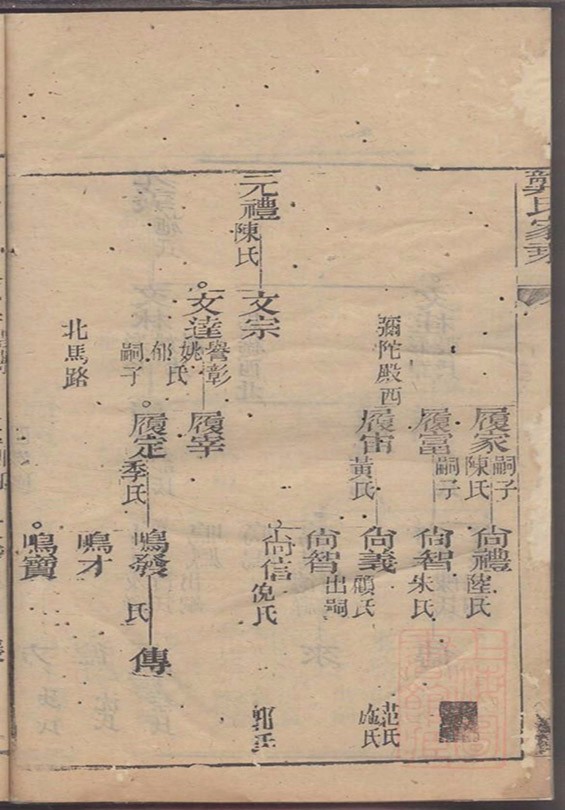 龔氏家乘
履家
嗣子
陳氏
尙禮
陸氏
履富
嗣子
尙智
朱氏
彌陀殿西
履宙
黃氏
尙義
顧氏
范氏
施氏
尙智
出嗣
尙信
倪氏
郭氏
元禮
陳氏
文宗
文達
譽彰
姚氏
郁氏
嗣子
履宰
履定
季氏
鳴發
氏
傳
鳴才
鳴寶
北馬路